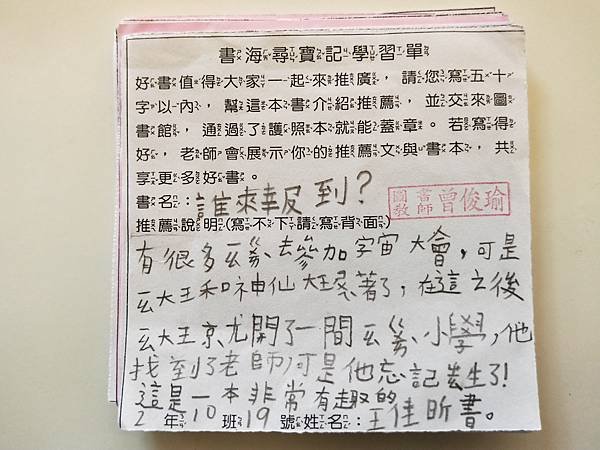 書海尋寶記學習單
好書值得大家一起來推廣，請您寫五十
字以內，幫這本書介紹推薦，並交來圖
書館，通過了護照本就能蓋章。若寫得
好，老師會展示你的推薦文與書本，共
享更多好書。
書名：誰來報到？
圖書教師 曾俊瑜
推薦說明(寫不下請寫背面)
有很多去參加宇宙大會，可是
大王和神仙大王著了，在這之後
大王就開了一間小學，他
找到了老師，可是他忘記去生了！
這是一本非常有趣的書。
2年10班19號姓名：王佳昕